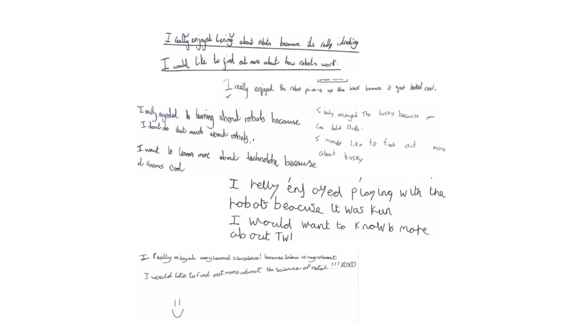 I really enjoyed about robots because its really
I would like to find out more about how robots work.
I really enjoyed the robot picking up the block because it just looked cool.
I really enjoyed learning about robots because
I don't do that much about robots.
I want to learn more about technology because
it seems cool
I enjoyed The busky because you
can build stuff.
I would like to find out more
about busky
I relly enjoyed playing with the
robots because it was fun
I would want to know more
about
I really enjoyed because Science is my
I would like to find out more about the science of !!! XOXO